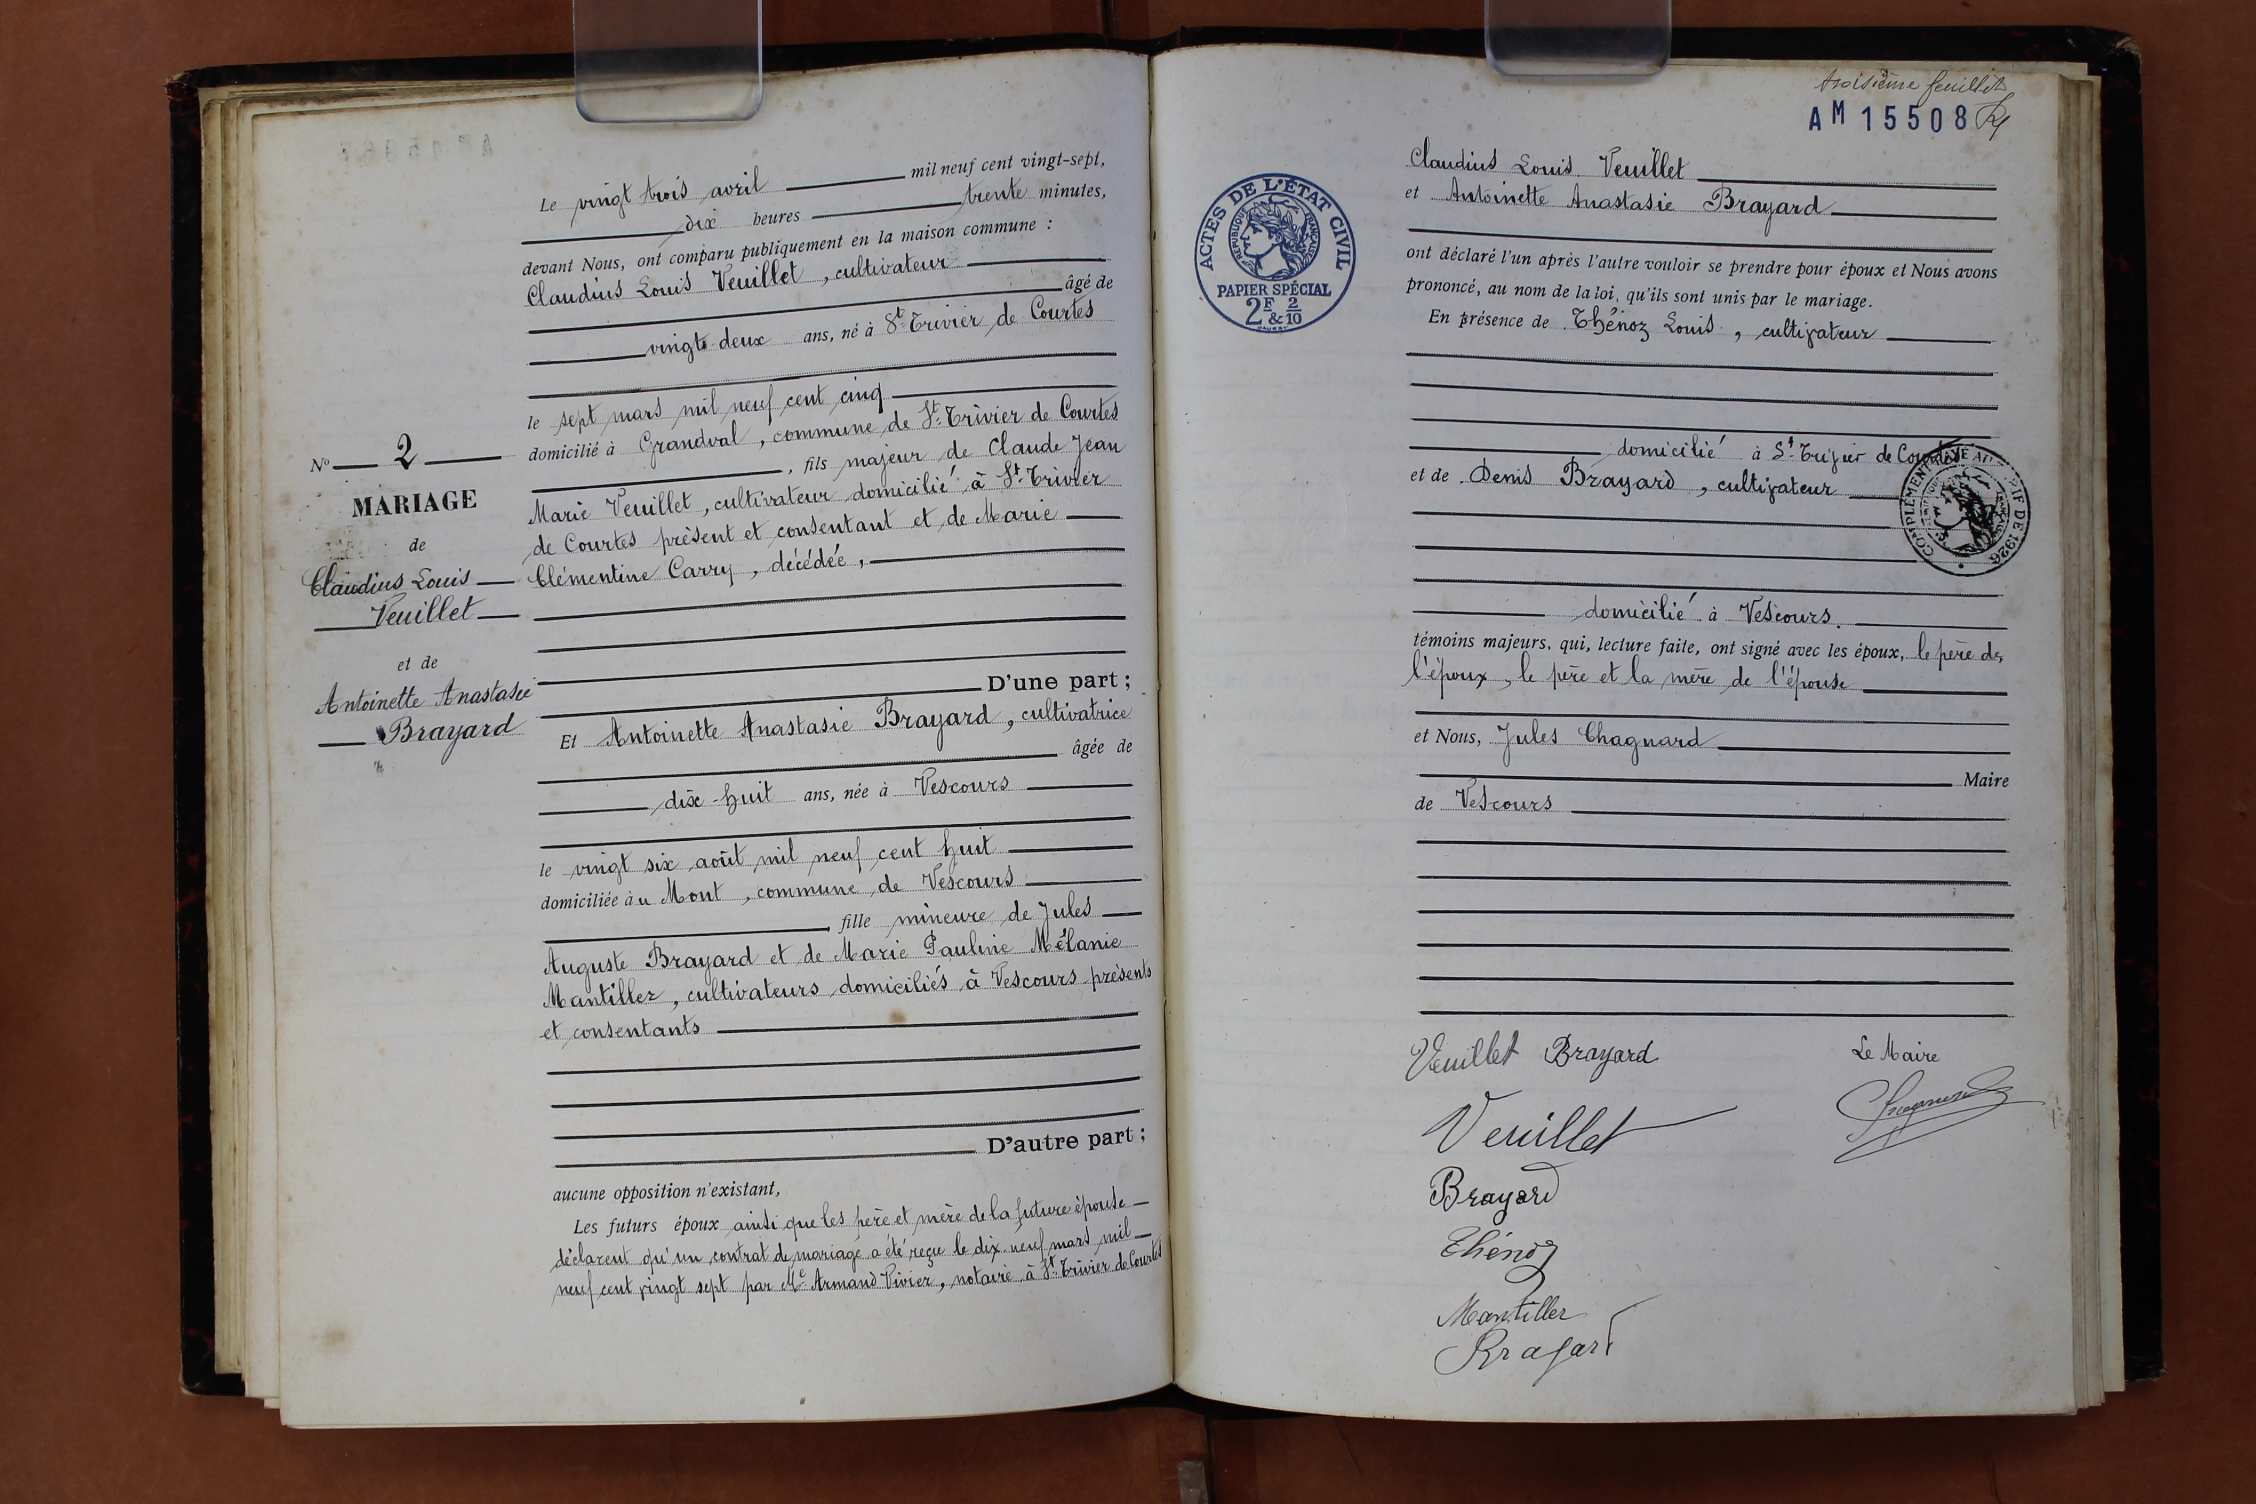 Le vingt trois avril mil neuf cent vingt-sept,
dix heures trente minutes,
devant Nous, ont comparu publiquement en la maison commune :
Claudius Louis Veuillet, cultivateur
âgé de
vingt deux ans, né à St Trivier de Courtes
le sept mars mil neuf cent cinq
domicilié à Grandval, commune de St Trivier de Courtes
, fils majeur de Claude Jean
Marie Veuillet, cultivateur domicilié à St Trivier
de Courtes présent et consentant et de Marie
Clémentine Carry, décédée,
D'une part ;
Et Antoinette Anastasie Brayard, cultivatrice
âgée de
dix-huit ans, née à Vescours
le vingt six août mil neuf cent huit
domiciliée au Mont, commune de Vescours
, fille mineure de Jules
Auguste Brayard et de Marie Pauline Mélanie
Mantillez, cultivateurs domiciliés à Vescours présents
et consentants
D'autre part ;
aucune opposition n'existant,
Les futurs époux ainsi que les père et mère de la future épouse
déclarent qu'un contrat de mariage a été reçu le dix-neuf mars mil
neuf cent vingt sept par Me Armand Vivier, notaire à St Trivier de Courtes
No 2
MARIAGE
de
Claudius Louis
Veuillet
et de
Antoinette Anastasie
Brayard
troisième feuillet
AM 15508
ACTES DE L'ÉTAT CIVIL
RÉPUBLIQUE FRANÇAISE
PAPIER SPÉCIAL
2F & 2/10
Claudius Louis Veuillet
et Antoinette Anastasie Brayard
ont déclaré l'un après l'autre vouloir se prendre pour époux et Nous avons
prononcé, au nom de la loi, qu'ils sont unis par le mariage.
En présence de Thénoz Louis, cultivateur
domicilié à St Trivier de Courtes
et de Denis Brayard, cultivateur
domicilié à Vescours.
témoins majeurs, qui, lecture faite, ont signé avec les époux, le père de
l'époux, le père et la mère de l'épouse
et Nous, Jules Chagnard
Maire
de Vescours
Veuillet Brayard
Le Maire
Chagnard
Veuillet
Brayard
Thénoz
Mantiller
Brayard